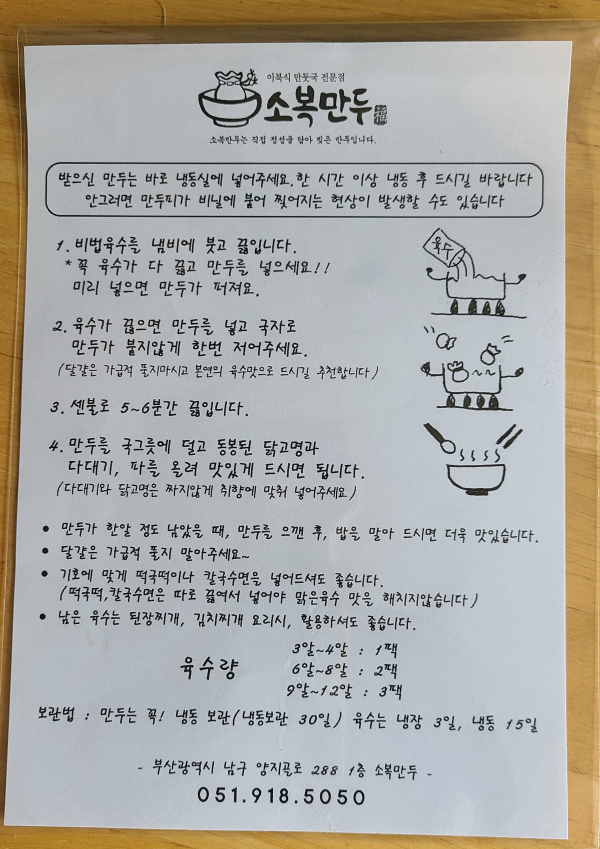 이북식 만둣국 전문점
소복만두 福
소복만두는 직접 정성을 담아 빚은 만두입니다.
받으신 만두는 바로 냉동실에 넣어주세요. 한 시간 이상 냉동 후 드시길 바랍니다
안그러면 만두피가 비닐에 붙어 찢어지는 현상이 발생할 수도 있습니다
1. 비법육수를 냄비에 붓고 끓입니다.
* 꼭 육수가 다 끓고 만두를 넣으세요!!
미리 넣으면 만두가 퍼져요.
육수
2. 육수가 끓으면 만두를 넣고 국자로
만두가 붙지않게 한번 저어주세요.
(달걀은 가급적 풀지마시고 본연의 육수맛으로 드시길 추천합니다)
3. 센불로 5~6분간 끓입니다.
4. 만두를 국그릇에 덜고 동봉된 닭고명과
다대기, 파를 올려 맛있게 드시면 됩니다.
(다대기와 닭고명은 짜지않게 취향에 맞춰 넣어주세요)
• 만두가 한알 정도 남았을 때, 만두를 으깬 후, 밥을 말아 드시면 더욱 맛있습니다.
• 달걀은 가급적 풀지 말아주세요~
• 기호에 맞게 떡국떡이나 칼국수면을 넣어드셔도 좋습니다.
(떡국떡,칼국수면은 따로 끓여서 넣어야 맑은육수 맛을 해치지않습니다)
• 남은 육수는 된장찌개, 김치찌개 요리시, 활용하셔도 좋습니다.
육수량
3알~4알 : 1팩
6알~8알 : 2팩
9알~12알 : 3팩
보관법 : 만두는 꼭! 냉동 보관(냉동보관 30일) 육수는 냉장 3일, 냉동 15일
- 부산광역시 남구 양지골로 288 1층 소복만두 -
051.918.5050